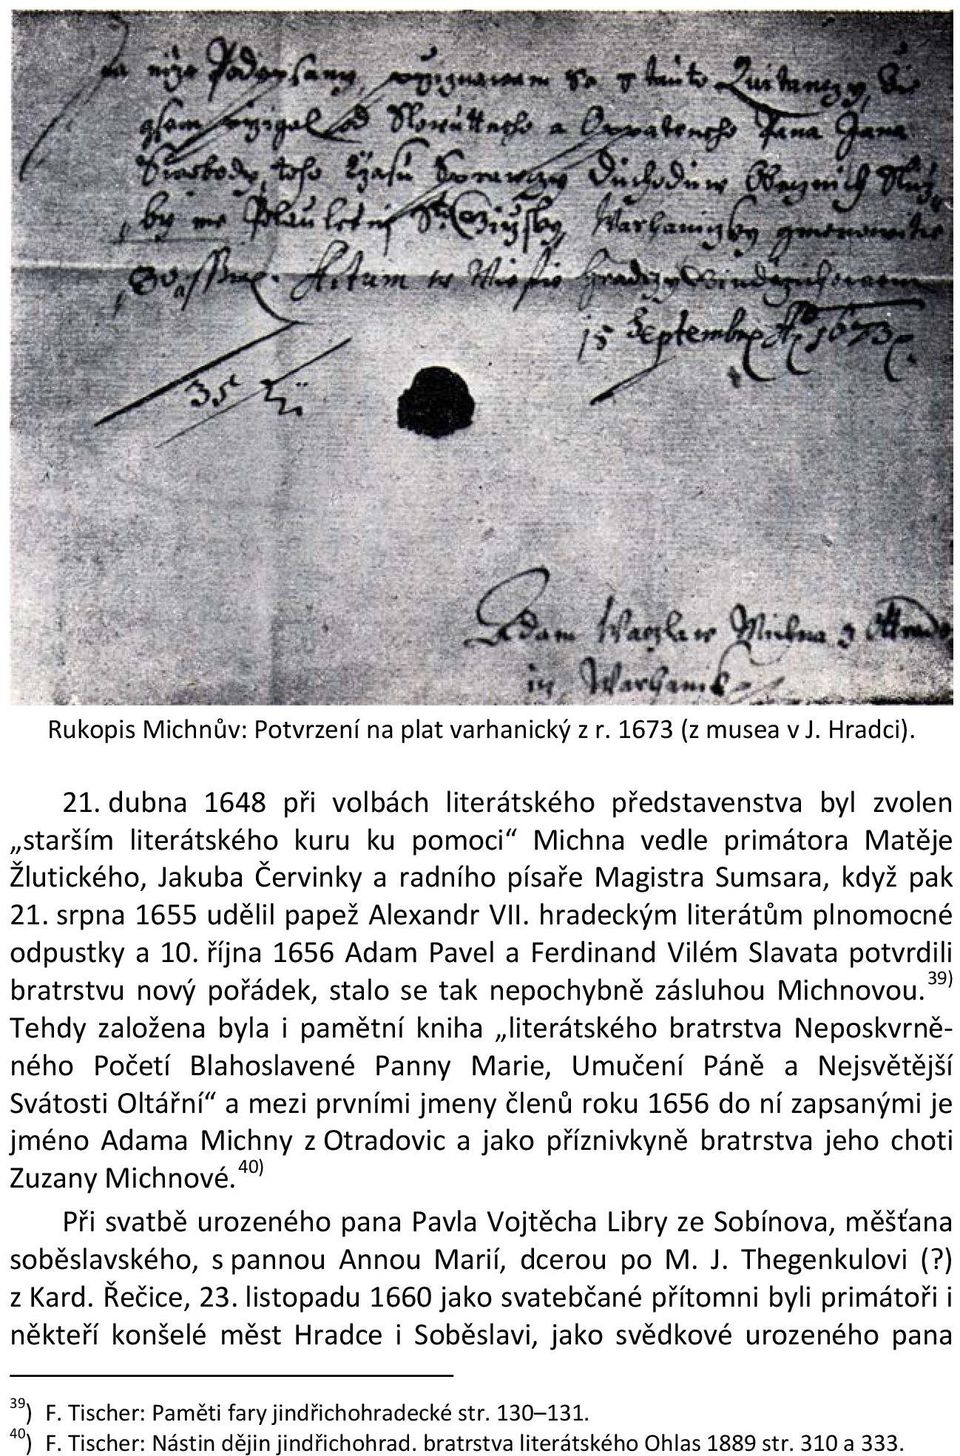 Ja niže Podepsany, wyznawam že s tauto Quitanczy,
gsem przigal od Slowutneho a Opatrneho Pana Jana
Swobody, toho czasu Sprawczy Duchoduw Obecznich
Warhaniczky gmenowitie
Actum w Miestie Hradczy
15 Septembry Ao 1673
35
Adam Waczlaw Michna z Ottrado
Warhanik
Rukopis Michnův: Potvrzení na plat varhanický z r. 1673 (z musea v J. Hradci).
21. dubna 1648 při volbách literátského představenstva byl zvolen
„starším literátského kuru ku pomoci“ Michna vedle primátora Matěje
Žlutického, Jakuba Červinky a radního písaře Magistra Sumsara, když pak
21. srpna 1655 udělil papež Alexandr VII. hradeckým literátům plnomocné
odpustky a 10. října 1656 Adam Pavel a Ferdinand Vilém Slavata potvrdili
bratrstvu nový pořádek, stalo se tak nepochybně zásluhou Michnovou.³⁹⁾
Tehdy založena byla i pamětní kniha „literátského bratrstva Neposkvrně-
ného Početí Blahoslavené Panny Marie, Umučení Páně a Nejsvětější
Svátosti Oltářní“ a mezi prvními jmeny členů roku 1656 do ní zapsanými je
jméno Adama Michny z Otradovic a jako příznivkyně bratrstva jeho choti
Zuzany Michnové.⁴⁰⁾
Při svatbě urozeného pana Pavla Vojtěcha Libry ze Sobínova, měšťana
soběslavského, s pannou Annou Marií, dcerou po M. J. Thegenkulovi (?)
z Kard. Řečice, 23. listopadu 1660 jako svatebčané přítomni byli primátoři i
někteří konšelé měst Hradce i Soběslavi, jako svědkové urozeného pana
³⁹) F. Tischer: Paměti fary jindřichohradecké str. 130–131.
⁴⁰) F. Tischer: Nástin dějin jindřichohrad. bratrstva literátského Ohlas 1889 str. 310 a 333.